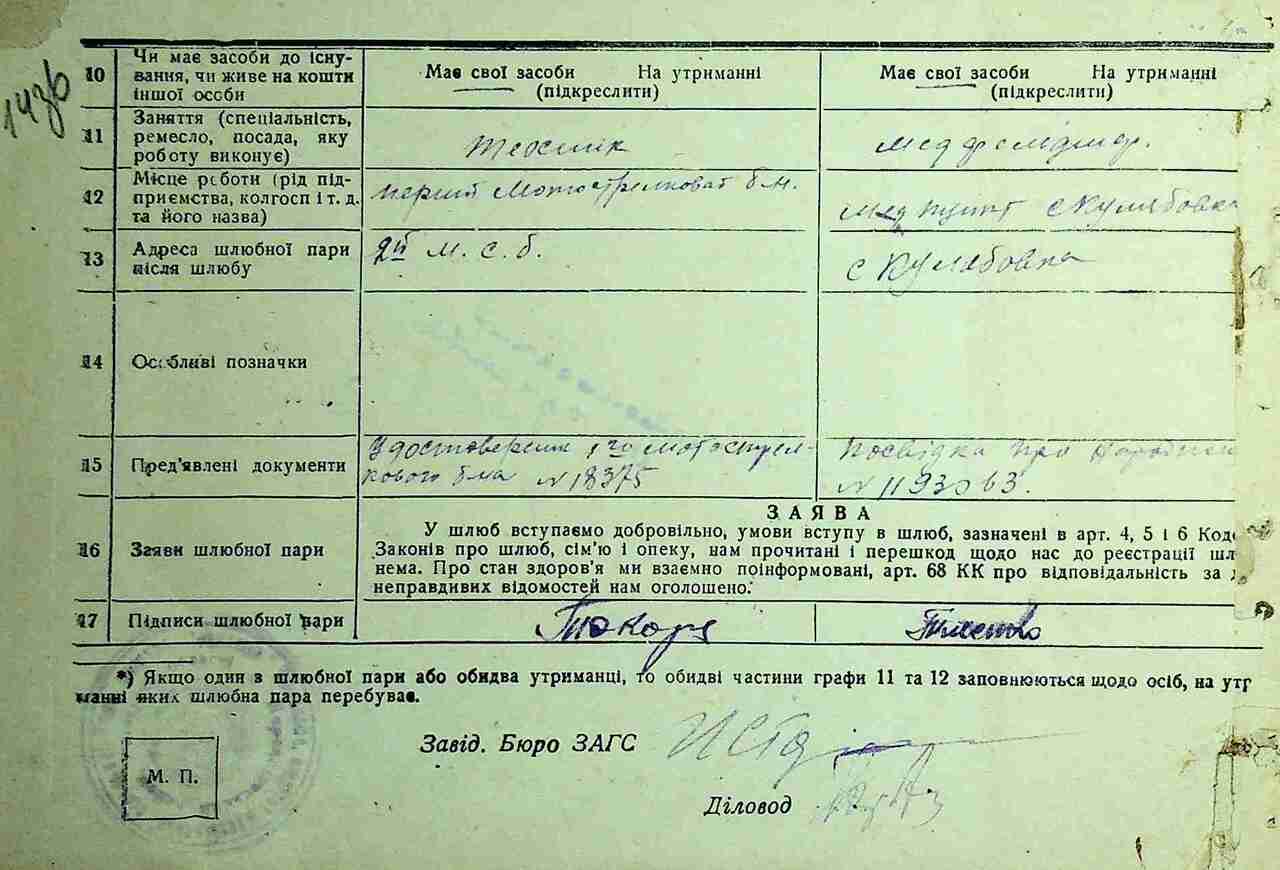 143б
10 Чи має засоби до існу-
вання, чи живе на кошти
іншої особи
Має свої засоби На утриманні
(підкреслити)
Має свої засоби На утриманні
(підкреслити)
11 Заняття (спеціальність,
ремесло, посада, яку
роботу виконує)
техник
12 Місце роботи (рід під-
приємства, колгосп і т. д.
та його назва)
первий Мотострелковий б-н.
мед пункт с Кулябовка
13 Адреса шлюбної пари
після шлюбу
2й м. с. б.
с Кулябовка
14 Особливі позначки
15 Пред'явлені документи
Удостоверения 1го мотострел-
кового б-на № 18375
Посвідка про
№
16 Заяви шлюбної пари
ЗАЯВА
У шлюб вступаємо добровільно, умови вступу в шлюб, зазначені в арт. 4, 5 і 6 Код
Законів про шлюб, сім'ю і опеку, нам прочитані і перешкод щодо нас до реєстрації шл
нема. Про стан здоров'я ми взаємно поінформовані, арт. 68 КК про відповідальність за
неправдивих відомостей нам оголошено.
17 Підписи шлюбної пари
*) Якщо один з шлюбної пари або обидва утриманці, то обидві частини графи 11 та 12 заповнюються щодо осіб, на утр
манні яких шлюбна пара перебуває.
Завід. Бюро ЗАГС
М. П.
Діловод